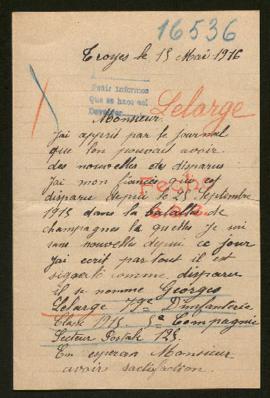 16536
Troyes le 15 Mai 1916
Pedir informes
Que se hace así
Devolver
Lelarge
Monsieur
J'ai apprit par le journal
que l'on pouvait avoir
des nouvelles des disparus
J'ai mon fiancé qui est
disparu depuis le 25 Septembre
1915 dans la bataille de
champagnes la quelles je sui
sans nouvelles depui ce jour
j'ai ecrit par tout il est
comme disparu
il se nomme Georges
Lelarge D'infanterie
Classe 1915 5e Compagnie
Secteur Postale 125.
En esperan Monsieur
avoir satisfaction